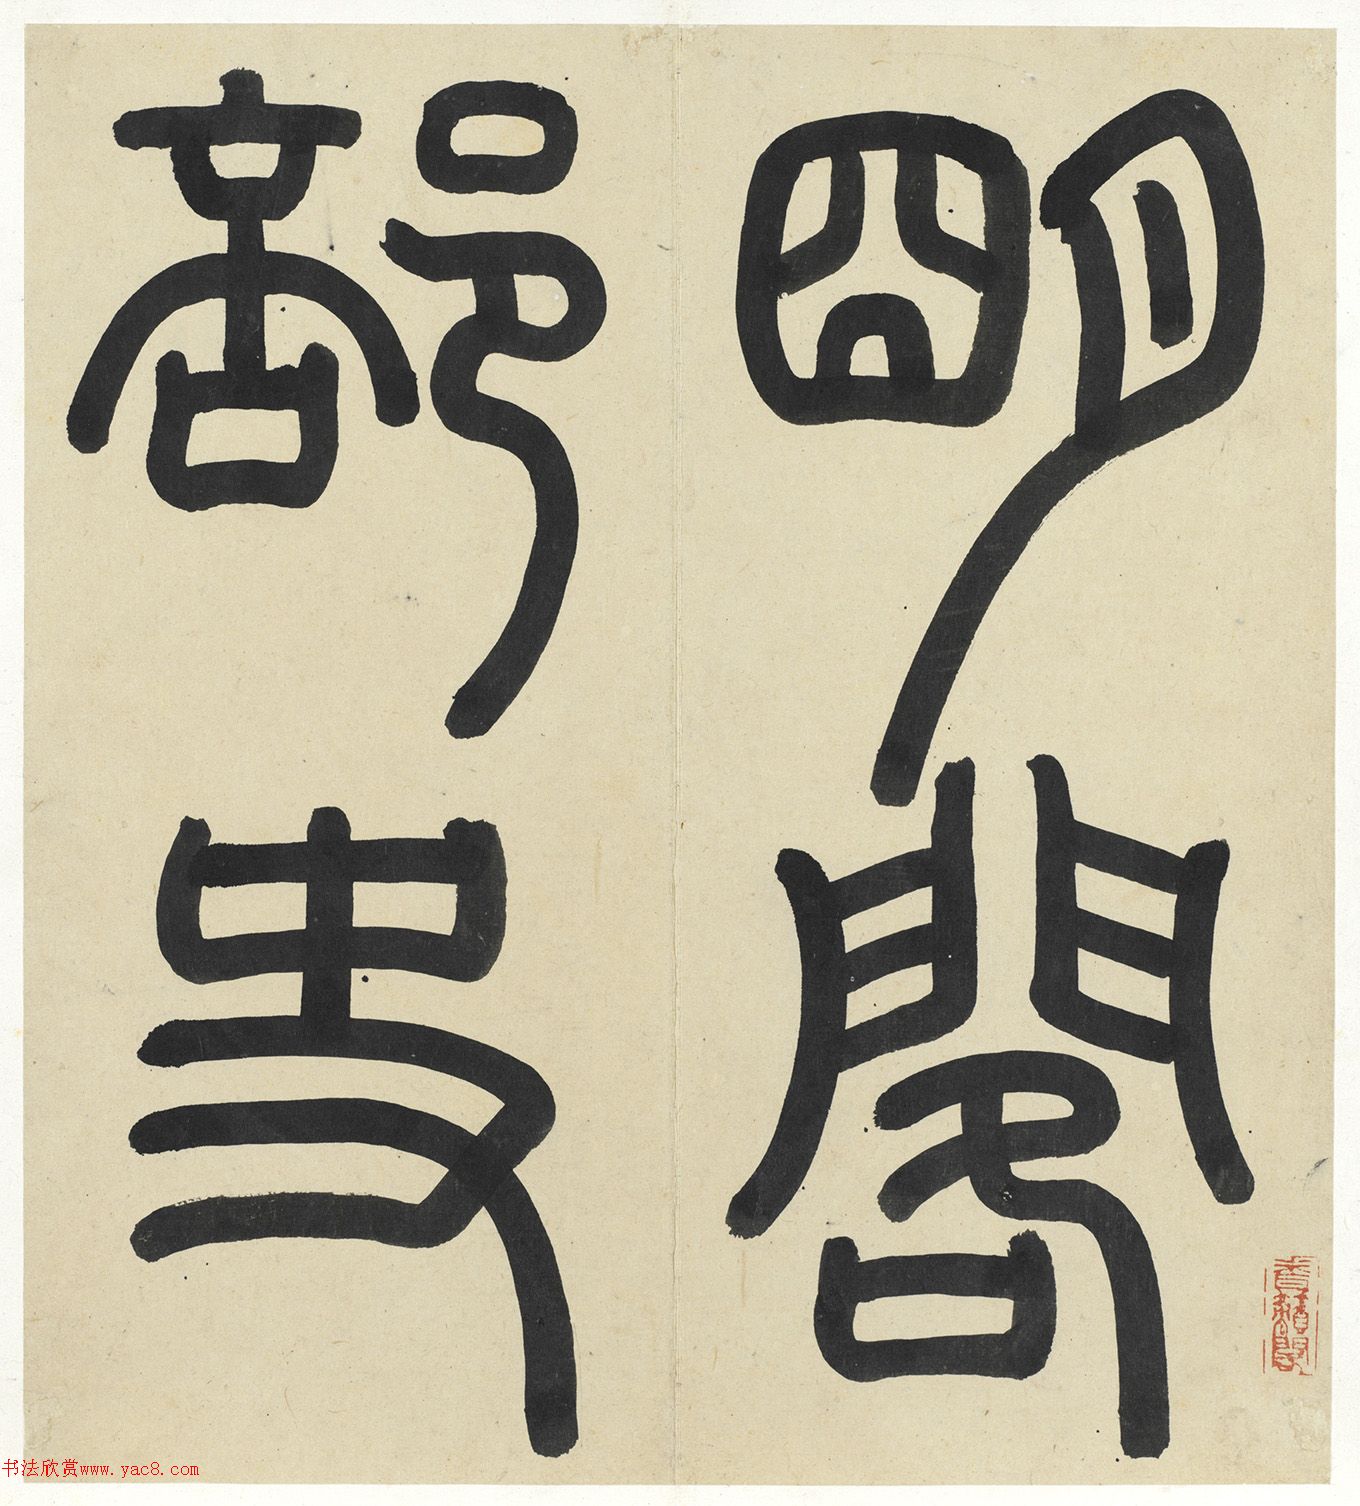 明閣
部史
书法欣赏www.yac8.com